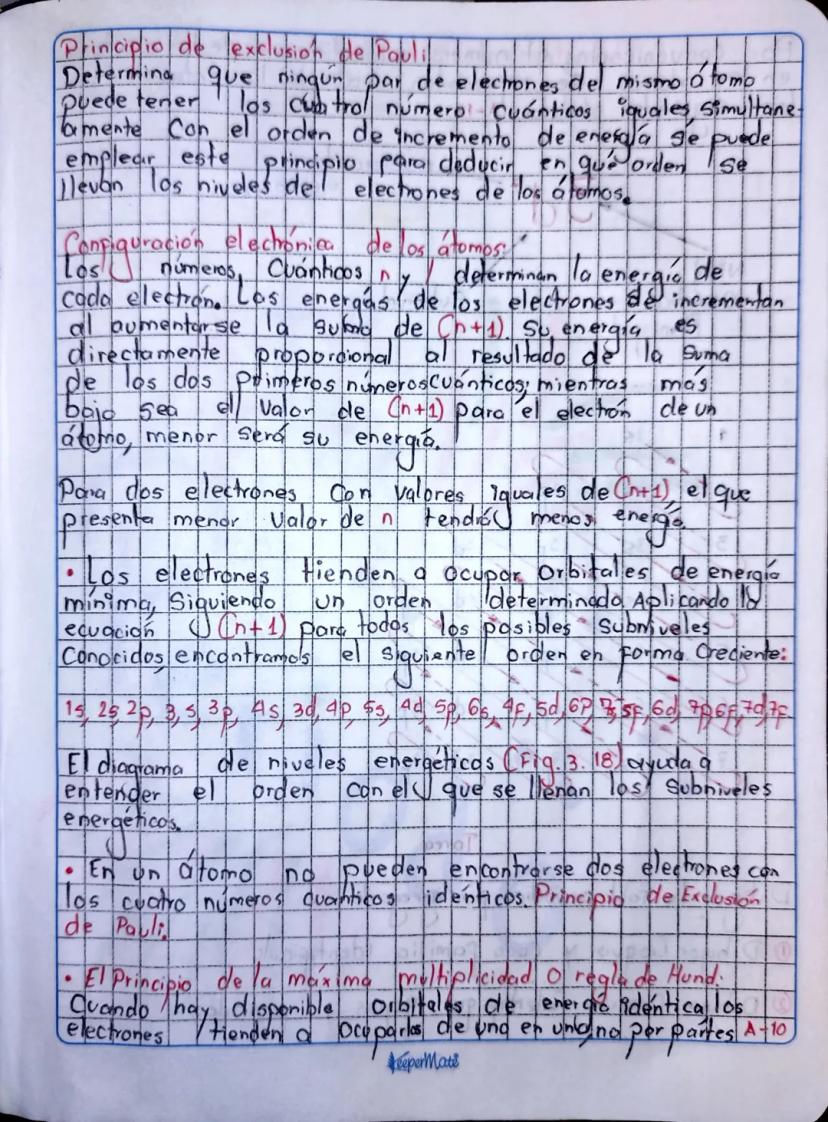 Principio de exclusión de Pauli
Determina que ningún par de electrones del mismo átomo
puede tener los cuatrol número cuánticos iguales, simultane-
amente Con el orden de incremento de energía se puede
emplear este principio para deducir en qué orden se
llevan los niveles de electrones de los átomos.
Configuración electrónica de los átomos:
Los números, Cuánticos n y l determinan la energía de
cada electrón. Las energás de los electrones de incrementan
al aumentarse la suma de (n+1). Su energía es
directamente proporcional al resultado de la suma
de los dos primeros números cuánticos; mientras más
bajo sea el valor de (n+1) para el electrón de un
átomo, menor será su energía.
Para dos electrones con valores iguales de (n+1), el que
presenta menor valor de n tendrá menos energía.
• Los electrones tienden a ocupar orbitales de energía
mínima, Siguiendo un orden determinado. Aplicando la
ecuación (n+1) para todos los posibles subniveles
Conocidos, encontramos el siguiente orden en forma Creciente:
1s, 2s, 2p, 3,s, 3p, 4s, 3d, 4p, 5s, 4d, 5p, 6s, 4f, 5d, 6p, 7s, 5f, 6d, 7p, 6f, 7d, 7f
El diagrama de niveles energéticos (Fig. 3. 18) ayuda a
entender el orden con el que se llenan los subniveles
energéticos.
• En un átomo no pueden encontrarse dos electrones con
los cuatro números quanticos idénticos. Principio de Exclusión
de Pauli.
• El Principio de la máxima multiplicidad O regla de Hund:
Cuando hay disponible orbitales de energía idéntica los
electrones tienden a ocuparlos de uno en uno por partes A-10
KeeperMate